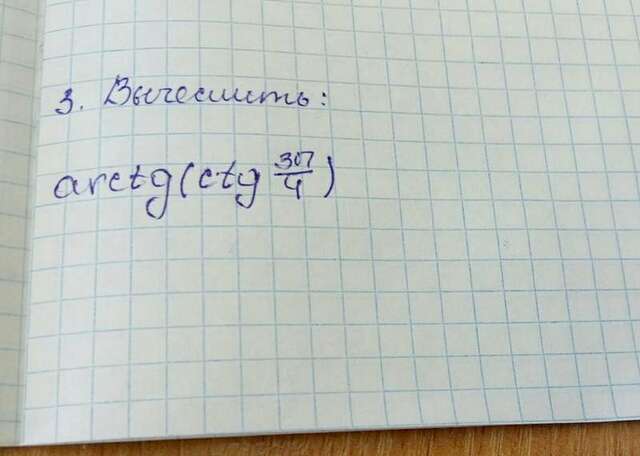 3. Вычеслить:
arctg(ctg 3π/4)